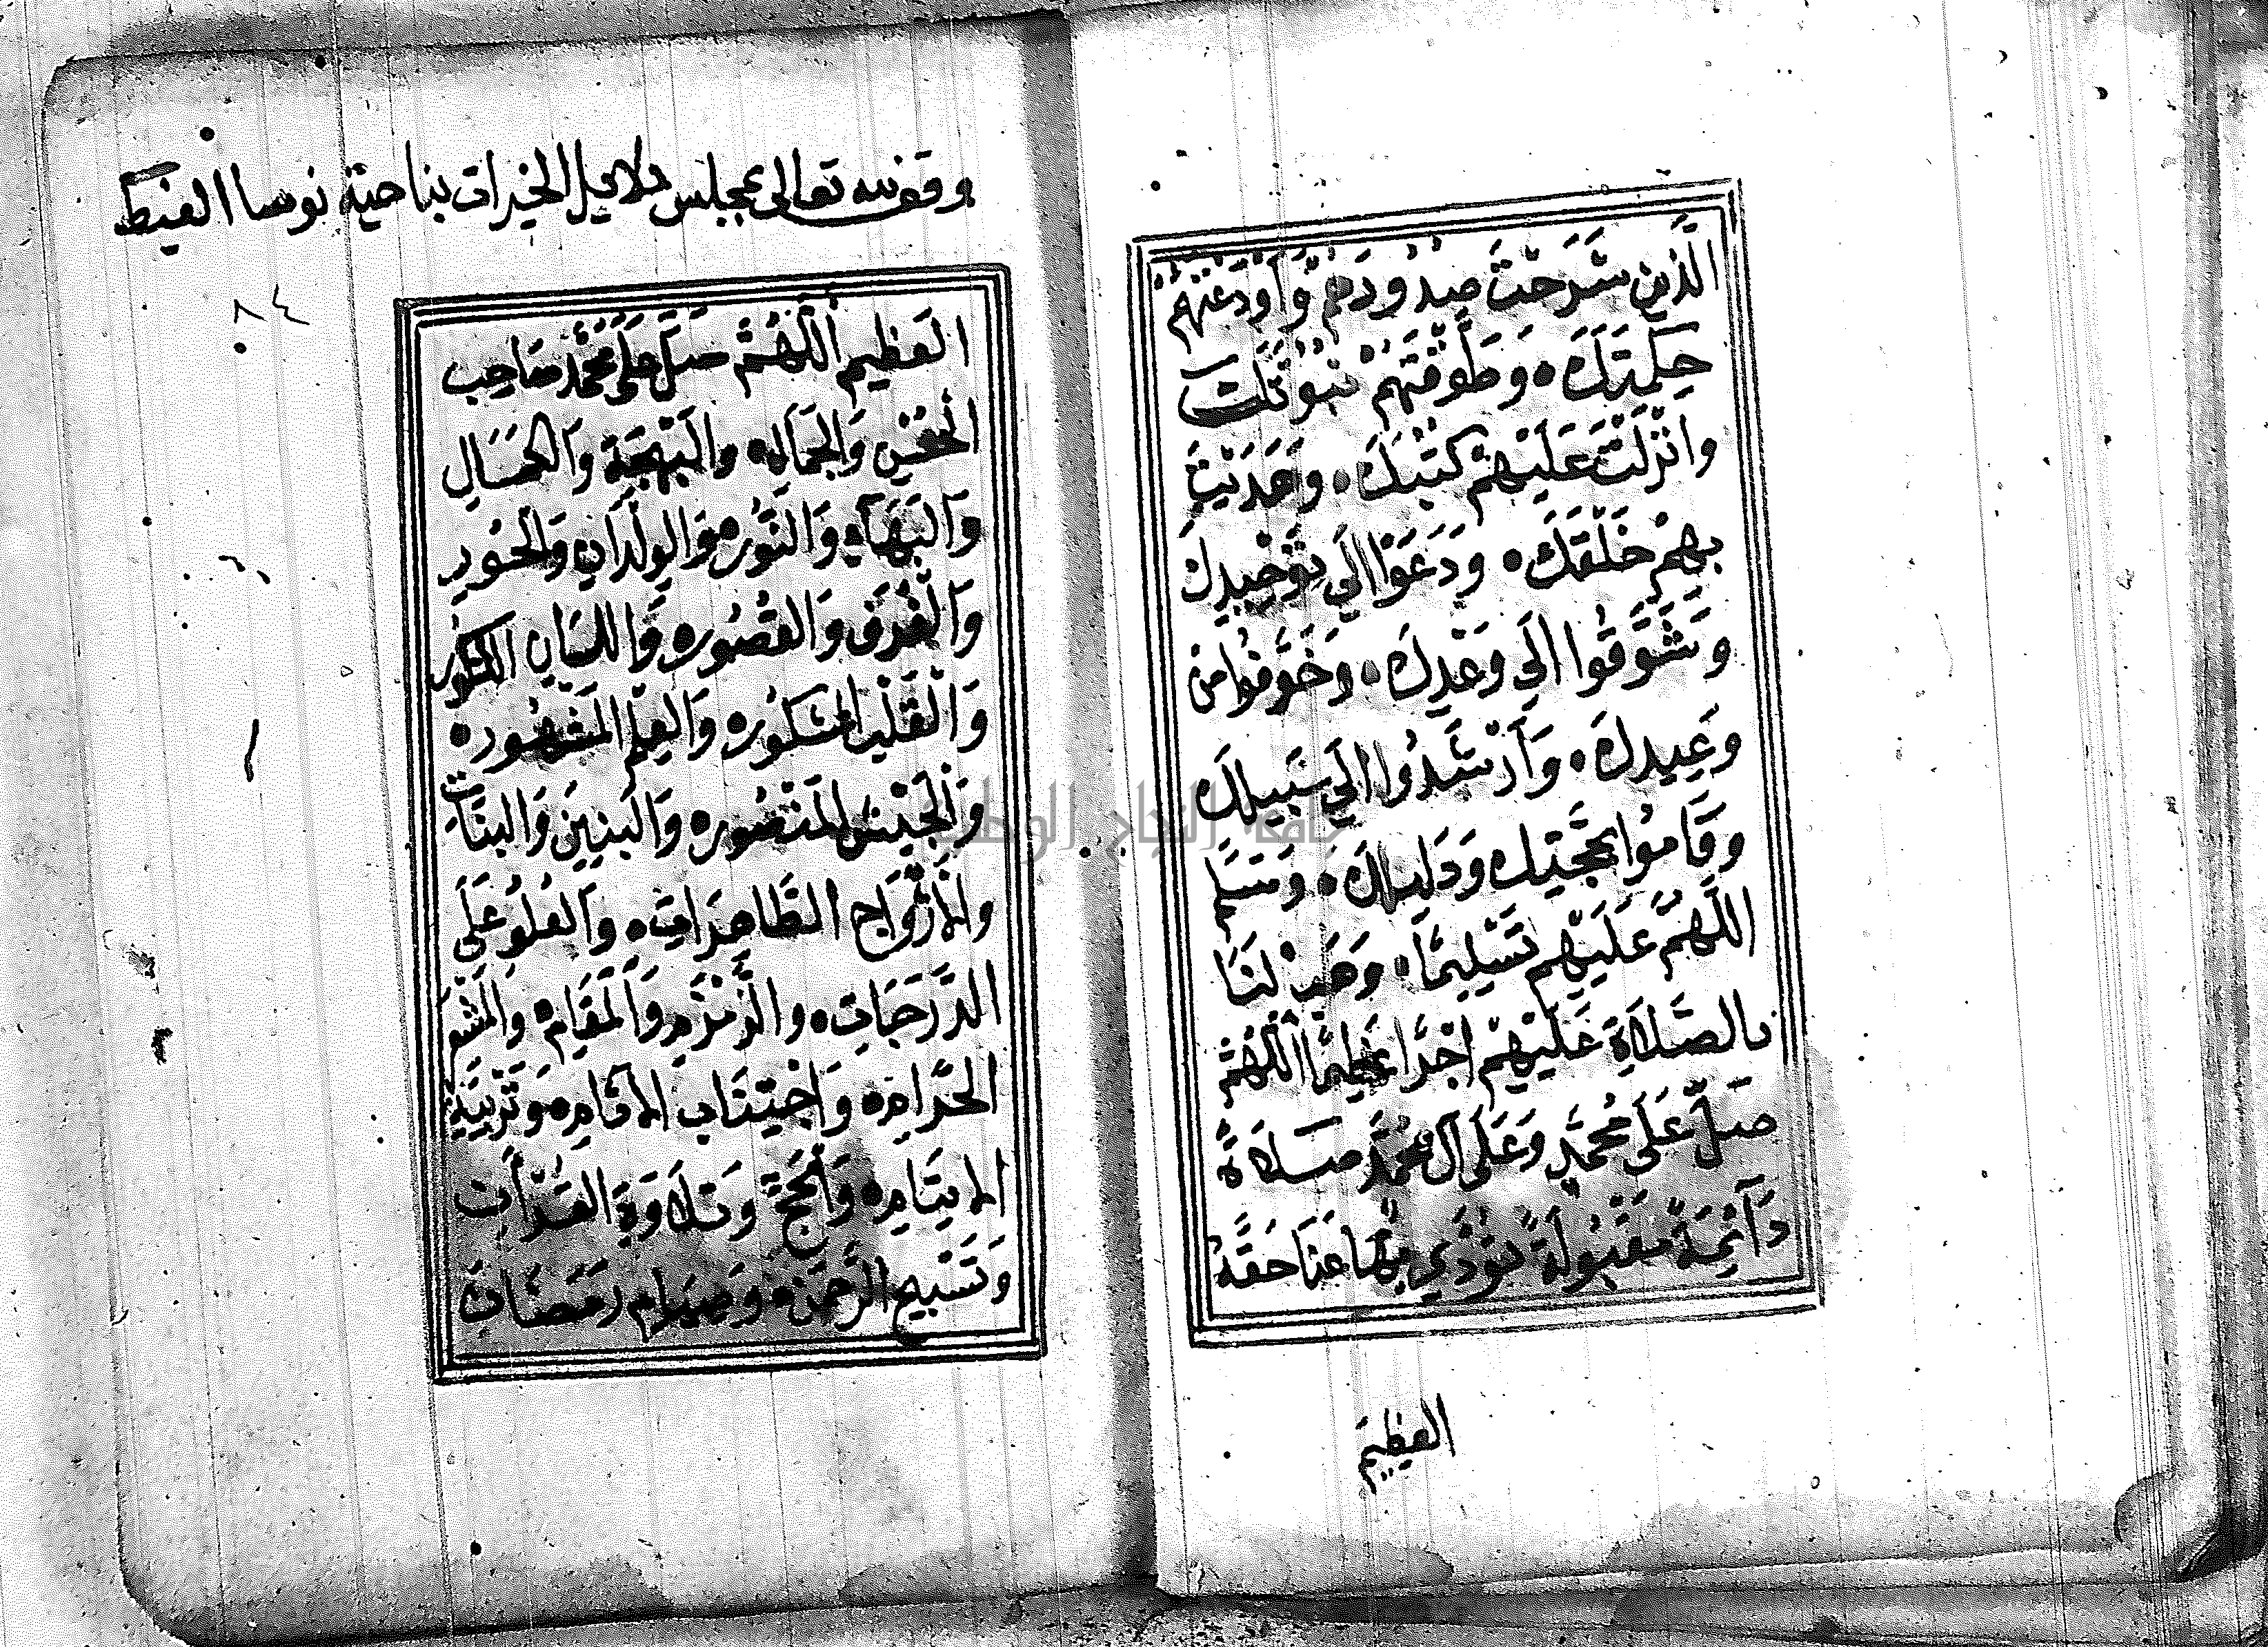 الَّذِينَ شَرَحْتَ صُدُورَهُمْ وَأَوْدَعْتَهُمْ
حِكْمَتَكَ وَطَوَّقْتَهُمْ نُبُوَّتَكَ
وَأَنْزَلْتَ عَلَيْهِمْ كُتُبَكَ وَهَدَيْتَ
بِهِمْ خَلْقَكَ وَدَعَوْا إِلَى تَوْحِيدِكَ
وَشَوَّقُوا إِلَى وَعْدِكَ وَخَوَّفُوا مِنْ
وَعِيدِكَ وَأَرْشَدُوا إِلَى سَبِيلِكَ
وَقَامُوا بِحُجَّتِكَ وَدَلِيلِكَ وَسَلِّمِ
اللَّهُمَّ عَلَيْهِمْ تَسْلِيمًا وَهَبْ لَنَا
بِالصَّلَاةِ عَلَيْهِمْ أَجْرًا عَظِيمًا اللَّهُمَّ
صَلِّ عَلَى مُحَمَّدٍ وَعَلَى آلِ مُحَمَّدٍ صَلَاةً
دَآئِمَةً مَقْبُولَةً تُؤَدِّي بِهَا عَنَّا حَقَّهُ
العَظِيمَ
وقف لله تعالى بمجلس دلائل الخيرات بناحية نوسا الغيط
٨٤
العَظِيمَ اللَّهُمَّ صَلِّ عَلَى مُحَمَّدٍ صَاحِبِ
الْحُسْنِ وَالْجَمَالِ وَالْبَهْجَةِ وَالْكَمَالِ
وَالْبَهَاءِ وَالنُّورِ وَالْوِلْدَانِ وَالْحُورِ
وَالْغُرَفِ وَالْقُصُورِ وَاللِّسَانِ الشَّكُورِ
وَالْقَلْبِ الْمَشْكُورِ وَالْعِلْمِ الْمَشْهُورِ
وَالْجَيْشِ الْمَنْصُورِ وَالْبَنِينَ وَالْبَنَاتِ
وَالْأَزْوَاجِ الطَّاهِرَاتِ وَالْعُلُوِّ عَلَى
الدَّرَجَاتِ وَالزَّمْزَمِ وَالْمَقَامِ وَالْمَشْعَرِ
الْحَرَامِ وَاجْتِنَابِ الْآثَامِ وَتَرْبِيَةِ
الْأَيْتَامِ وَالْحَجِّ وَتِلَاوَةِ الْقُرْآنِ
وَتَسْبِيحِ الرَّحْمَنِ وَصِيَامِ رَمَضَانَ
جامعة النجاح الوطنية